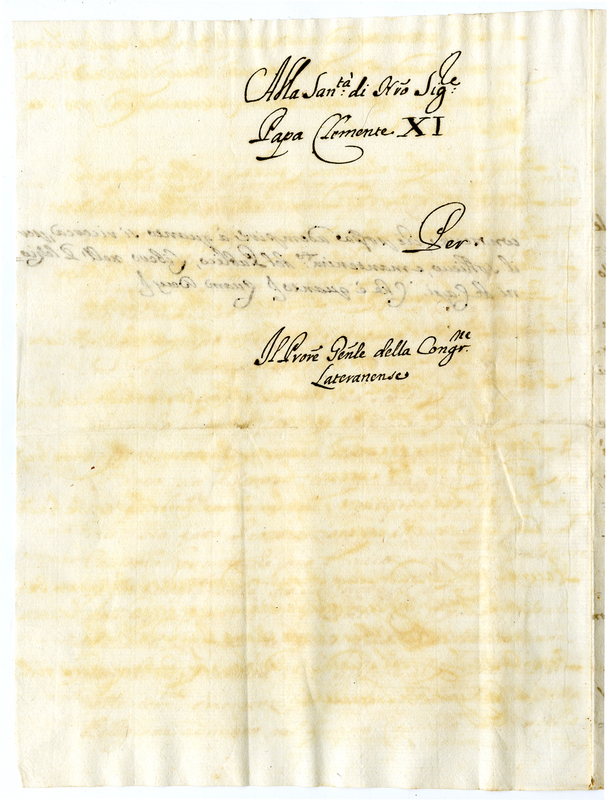 Alla San:tà di Nrō Sig:re
Papa Clemente XI
Per.
Il Prorē Gen̄le della Congr:ne
Lateranense